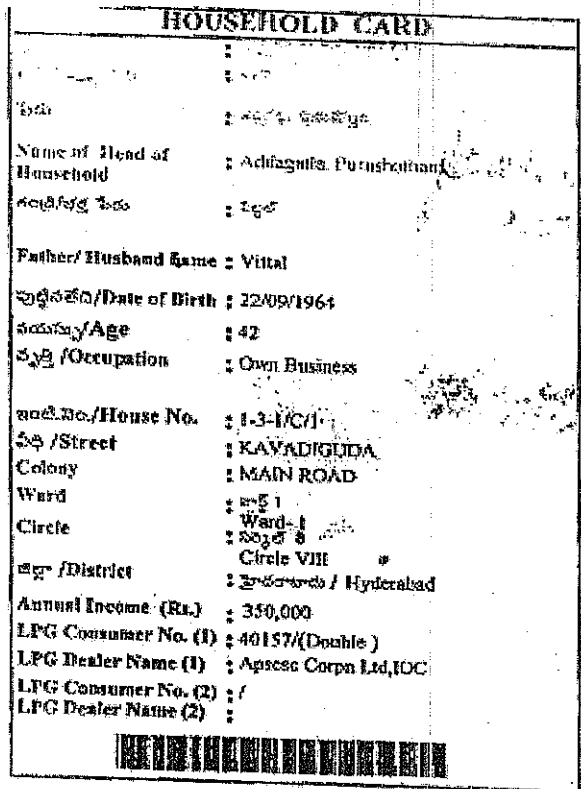 HOUSEHOLD CARD
Name of Head of : Purushotham
Household
Father/ Husband Name : Vittal
పుట్టినతేది/Date of Birth : 22/09/1964
వయస్సు/Age : 42
వృత్తి /Occupation : Own Business
ఇంటి.నెం./House No. : 1-3-1/C/1
వీధి /Street : KAVADIGUDA
Colony : MAIN ROAD
Ward : వార్డ్ 1
Ward-1
Circle :
Circle VIII
జిల్లా /District : హైదరాబాదు / Hyderabad
Annual Income (Rs.) : 350,000
LPG Consumer No. (1) : 40157/(Double )
LPG Dealer Name (1) : Apscsc Corpn Ltd,IOC
LPG Consumer No. (2) : /
LPG Dealer Name (2) :